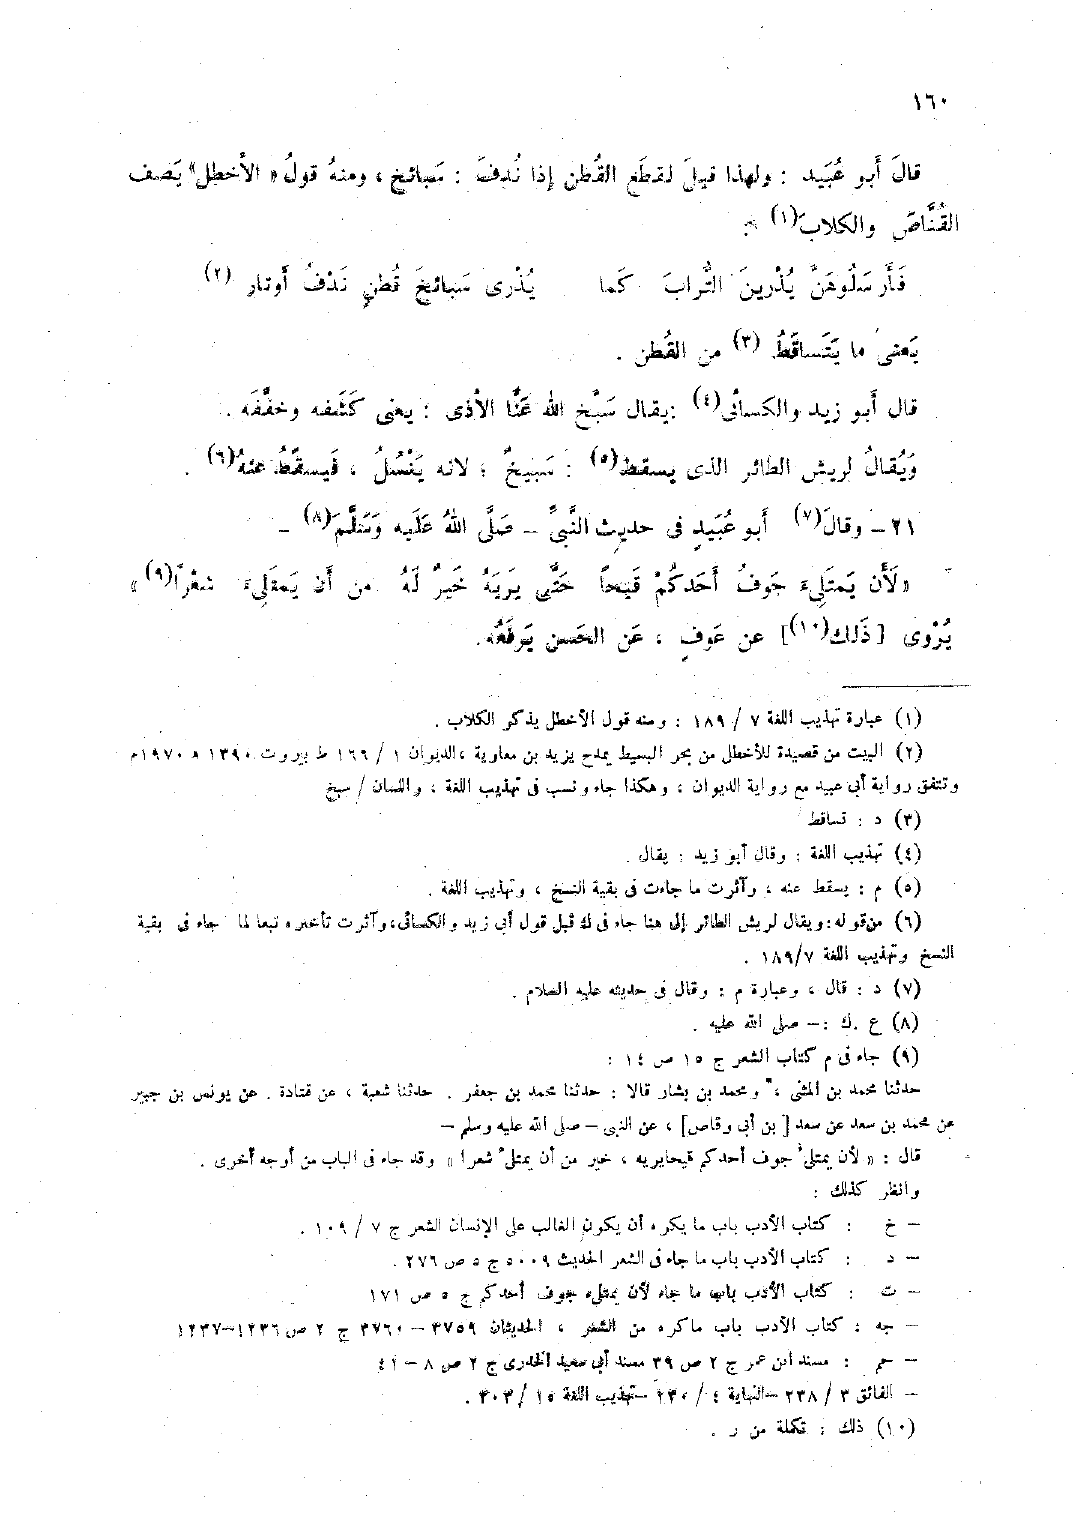 ١٦٠
قالَ أَبو عُبَيد : ولهذا قيلَ لقطَع القُطن إذا نُدفَ : سَبائخ ، ومنهُ قولُ « الأخطل" يَصف
القُنَّاصَ والكلابَ (١) :
فَأَرسَلُوهُنَّ يُذْرينَ التُّرابَ كَما يُذْرى سَبائخَ قُطنٍ نَدْفُ أَوتار (٢)
يَعنى ما يَتَساقَطُ (٣) من القُطن .
قال أَبو زيد والكسائى(٤) :يقال سَبَّخ الله عَنَّا الأذى : يعنى كَشَفه وخفَّفَه .
وَيُقالُ لريش الطائر الذى يسقط(٥) : سَبيخٌ ؛ لانه يَنْسُلُ ، فَيسقُطُ عنهُ(٦) .
٢١ – وقالَ(٧) أَبو عُبَيدٍ فى حديث النَّبيِّ – صَلَّى اللهُ عَلَيه وَسَلَّمَ(٨) –
« لَأَن يَمتَلِىءَ جَوفُ أَحَدكُمْ قَيحاً حَتَّى يَرِيَهُ خَيرٌ لَهُ من أَن يَمتَلِىءَ شعْراً(٩) »
يُرْوى [ ذَلك(١٠)] عن عَوفٍ ، عَن الحَسن يَرفَعُه .
(١) عبارة تهذيب اللغة ٧ / ١٨٩ : ومنه قول الأخطل يذكر الكلاب .
(٢) البيت من قصيدة للأخطل من بحر البسيط يمدح يزيد بن معاوية ، الديوان ١ / ١٦٦ ط بيروت ١٣٩٠ ه ١٩٧٠م
وتتفق رواية أبى عبيد مع رواية الديوان ، وهكذا جاء ونسب فى تهذيب اللغة ، واللسان / سبخ
(٣) د : تساقط
(٤) تهذيب اللغة : وقال أبو زيد : يقال .
(٥) م : يسقط عنه ، وآثرت ما جاءت فى بقية النسخ ، وتهذيب اللغة .
(٦) من قوله : ويقال لريش الطائر إلى هنا جاء فى ك قبل قول أبى زيد والكسائى، وآثرت تأخيره تبعا لما جاء فى بقية
النسخ وتهذيب اللغة ١٨٩/٧ .
(٧) د : قال ، وعبارة م : وقال فى حديثه عليه السلام .
(٨) ع . ك :– صلى الله عليه .
(٩) جاء فى م كتاب الشعر ج ١٥ ص ١٤ :
حدثنا محمد بن المثنى ، ومحمد بن بشار قالا : حدثنا محمد بن جعفر . حدثنا شعبة ، عن قتادة . عن يونس بن جبير
عن محمد بن سعد عن سعد [ بن أبى وقاص] ، عن النبى – صلى الله عليه وسلم –
قال : « لأن يمتلئ جوف أحدكم قيحا يريه ، خير من أن يمتلئ شعرا » وقد جاء فى الباب من أوجه أخرى .
وانظر كذلك :
– خ : كتاب الأدب باب ما يكره أن يكون الغالب على الإنسان الشعر ج ٧ / ١٠٩ .
– د : كتاب الأدب باب ما جاء فى الشعر الحديث ٥٠٠٩ ج ٥ ص ٢٧٦ .
– ت : كتاب الأدب باب ما جاء لأن يمتلىء جوف أحدكم ج ٥ ص ١٧١
– جه : كتاب الأدب باب ماكره من الشعر ، الحديثان ٣٧٥٩ – ٣٧٦٠ ج ٢ ص ١٢٣٦–١٢٣٧
– حم : مسند ابن عمر ج ٢ ص ٣٩ مسند أبى سعيد الخدرى ج ٣ ص ٨ – ٤١
– الفائق ٣ / ٢٣٨ –النهاية ٤ / ٢٣٠ –تهذيب اللغة ١٥ / ٣٠٣ .
(١٠) ذلك : تكملة من ر .